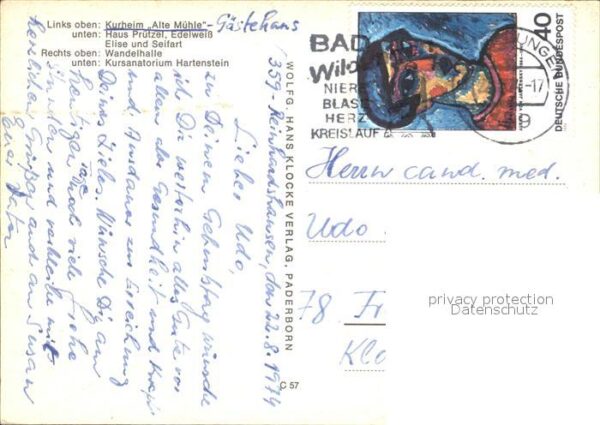 Links oben: Kurheim „Alte Mühle" - Gästehaus
unten: Haus Prützel, Edelweiß
Elise und Seifart
Rechts oben: Wandelhalle
unten: Kursanatorium Hartenstein
359 - Reinhardshausen, den 22.8.1974
Lieber Udo,
zu Deinem Geburtstag wünsche
ich Dir weiterhin alles Gute vor
allem aber Gesundheit und Kraft
und Ausdauer zur Erreichung
Deines Zieles. Wünsche Dir am
heutigen Tage noch viele frohe
Stunden und verbleibe mit
herzlichen Grüßen auch an Susan
Dein Vater
WOLFG. HANS KLOCKE VERLAG, PADERBORN
C 57
BAD
Wild
UNGEN
NIER
BLASE
HERZ
KREISLAUF
-17
9
40
DEUTSCHE BUNDESPOST
Herrn cand. med.
Udo
78 Fr
Klo
privacy protection
Datenschutz